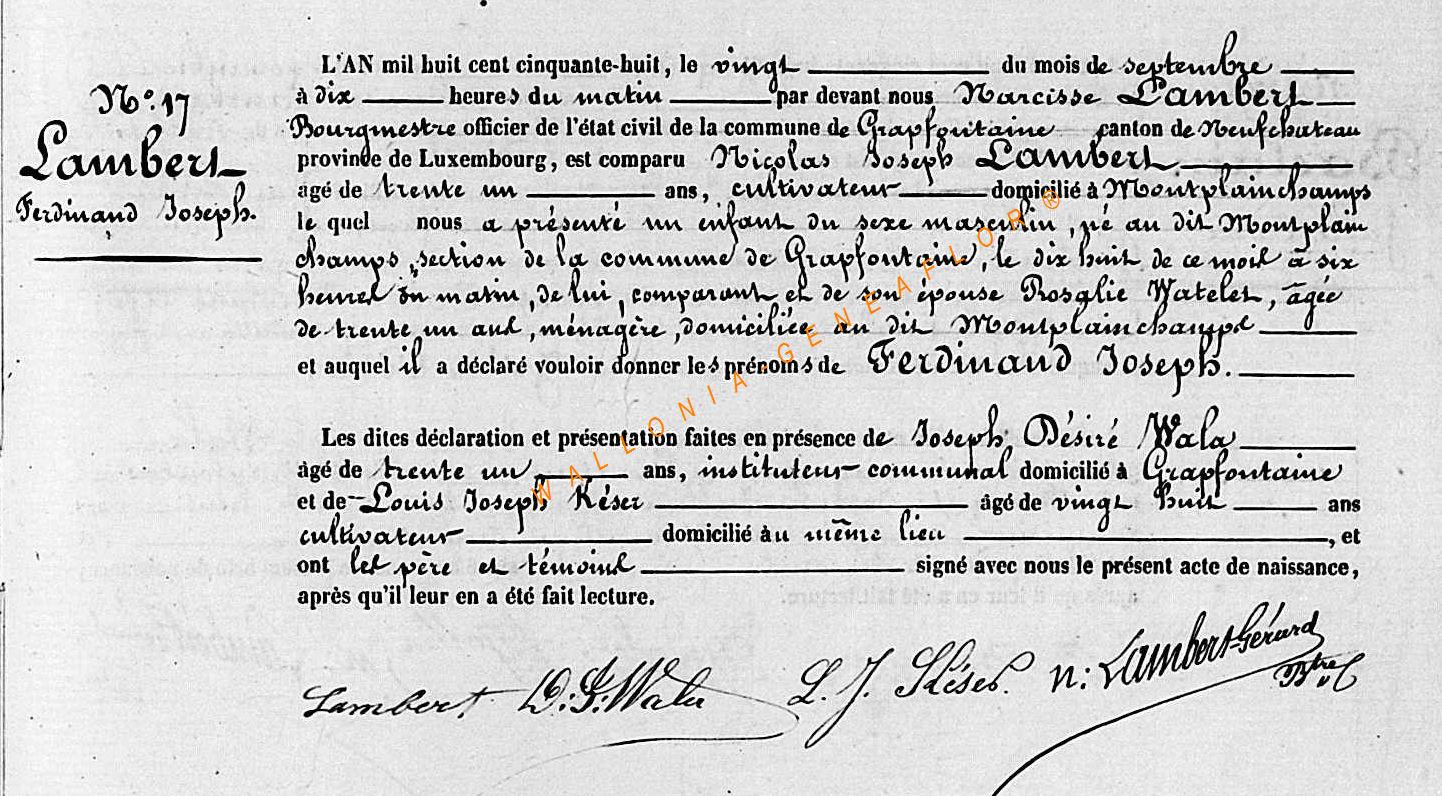 N°. 17
Lambert
Ferdinand Joseph.
L'AN mil huit cent cinquante-huit, le vingt du mois de septembre
à dix heures du matin par devant nous Narcisse Lambert
Bourgmestre officier de l'état civil de la commune de Grapfontaine canton de Neufchateau
province de Luxembourg, est comparu Nicolas Joseph Lambert
âgé de trente un ans, cultivateur domicilié à Montplainchamps
le quel nous a présenté un enfant du sexe masculin, né au dit Montplain
champs, section de la commune de Grapfontaine, le dix huit de ce mois à six
heures du matin, de lui, comparant et de son épouse Rosalie Watelet, âgée
de trente un ans, ménagère, domiciliée au dit Montplainchamps
et auquel il a déclaré vouloir donner les prénoms de Ferdinand Joseph.
Les dites déclaration et présentation faites en présence de Joseph Désiré Wala
âgé de trente un ans, instituteur communal domicilié à Grapfontaine
et de Louis Joseph Késer âgé de vingt huit ans
cultivateur domicilié au même lieu , et
ont les père et témoins signé avec nous le présent acte de naissance,
après qu'il leur en a été fait lecture.
Lambert D. J. Wala L. J. Késer. n: Lambert-Gérard
WALLONIA-GENEAFLOR®